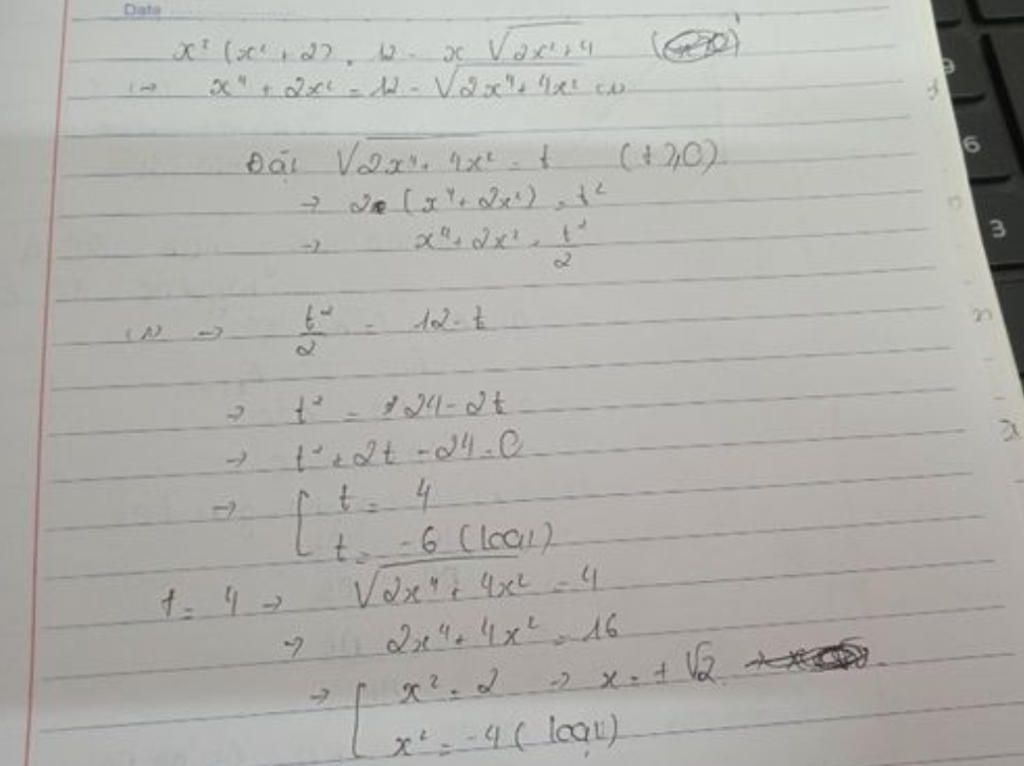 Date
x² (x² + 2) = 12 - x √(2x² + 4)
<-> x⁴ + 2x² = 12 - √(2x⁴ + 4x²) (1)
Đặt √(2x⁴ + 4x²) = t (t ≥ 0)
-> 2 (x⁴ + 2x²) = t²
-> x⁴ + 2x² = t²/2
(1) -> t²/2 = 12 - t
-> t² = 24 - 2t
-> t² + 2t - 24 = 0
-> [ t = 4
t = -6 (loại)
t = 4 -> √(2x⁴ + 4x²) = 4
-> 2x⁴ + 4x² = 16
-> [ x² = 2 -> x = ± √2
x² = -4 (loại)
9
6
3